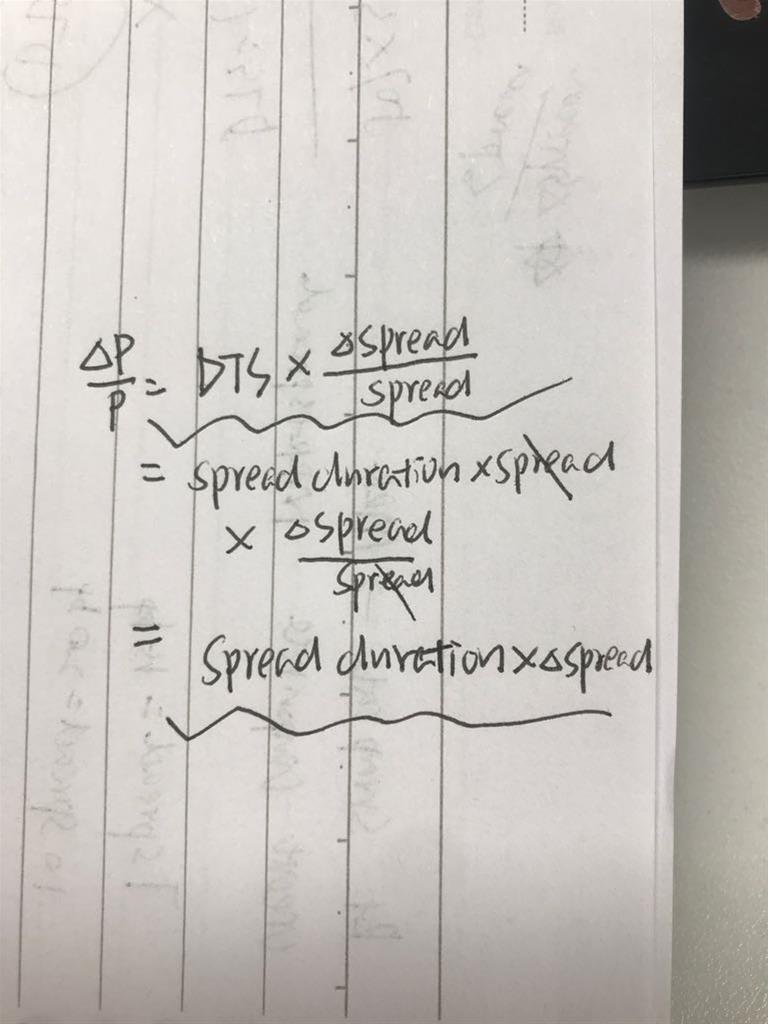 ΔP/P = DTS × Δspread/spread
= spread duration × spread
× Δspread/spread
= Spread duration × Δspread